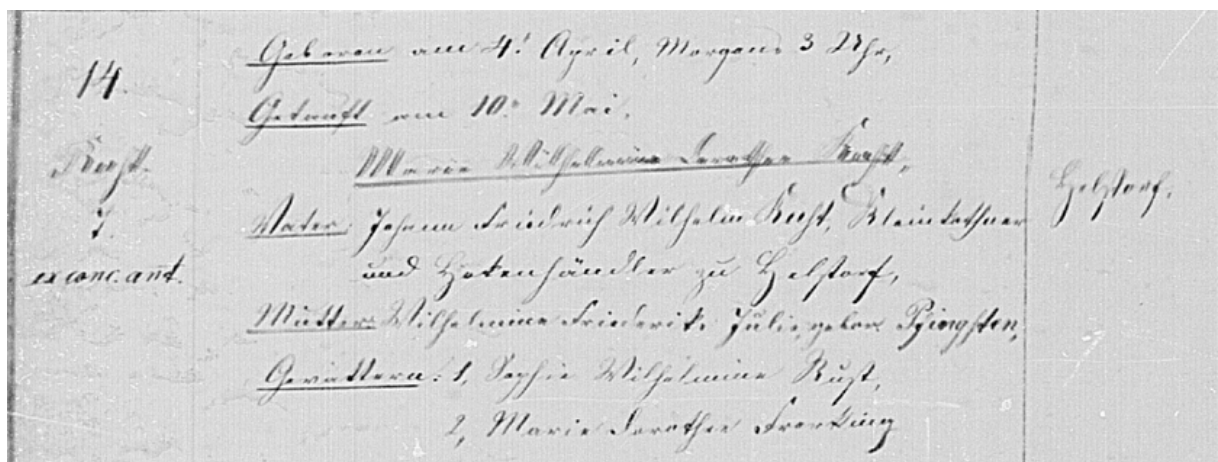 14.
T.
ex conc. ant.
Geboren am 4. April, Morgens 3 Uhr,
Getauft am 10. Mai,
Marie Wilhelmine Dorothee
Vater: Johann Friedrich Wilhelm Kleinköthner
und Hokenhändler zu Helstorf,
Mutter: Wilhelmine Friederike Julie, gebor. Pfingsten,
Gevattern: 1, Sophie Wilhelmine Rust,
2, Marie Dorothee Frerking
Helstorf.